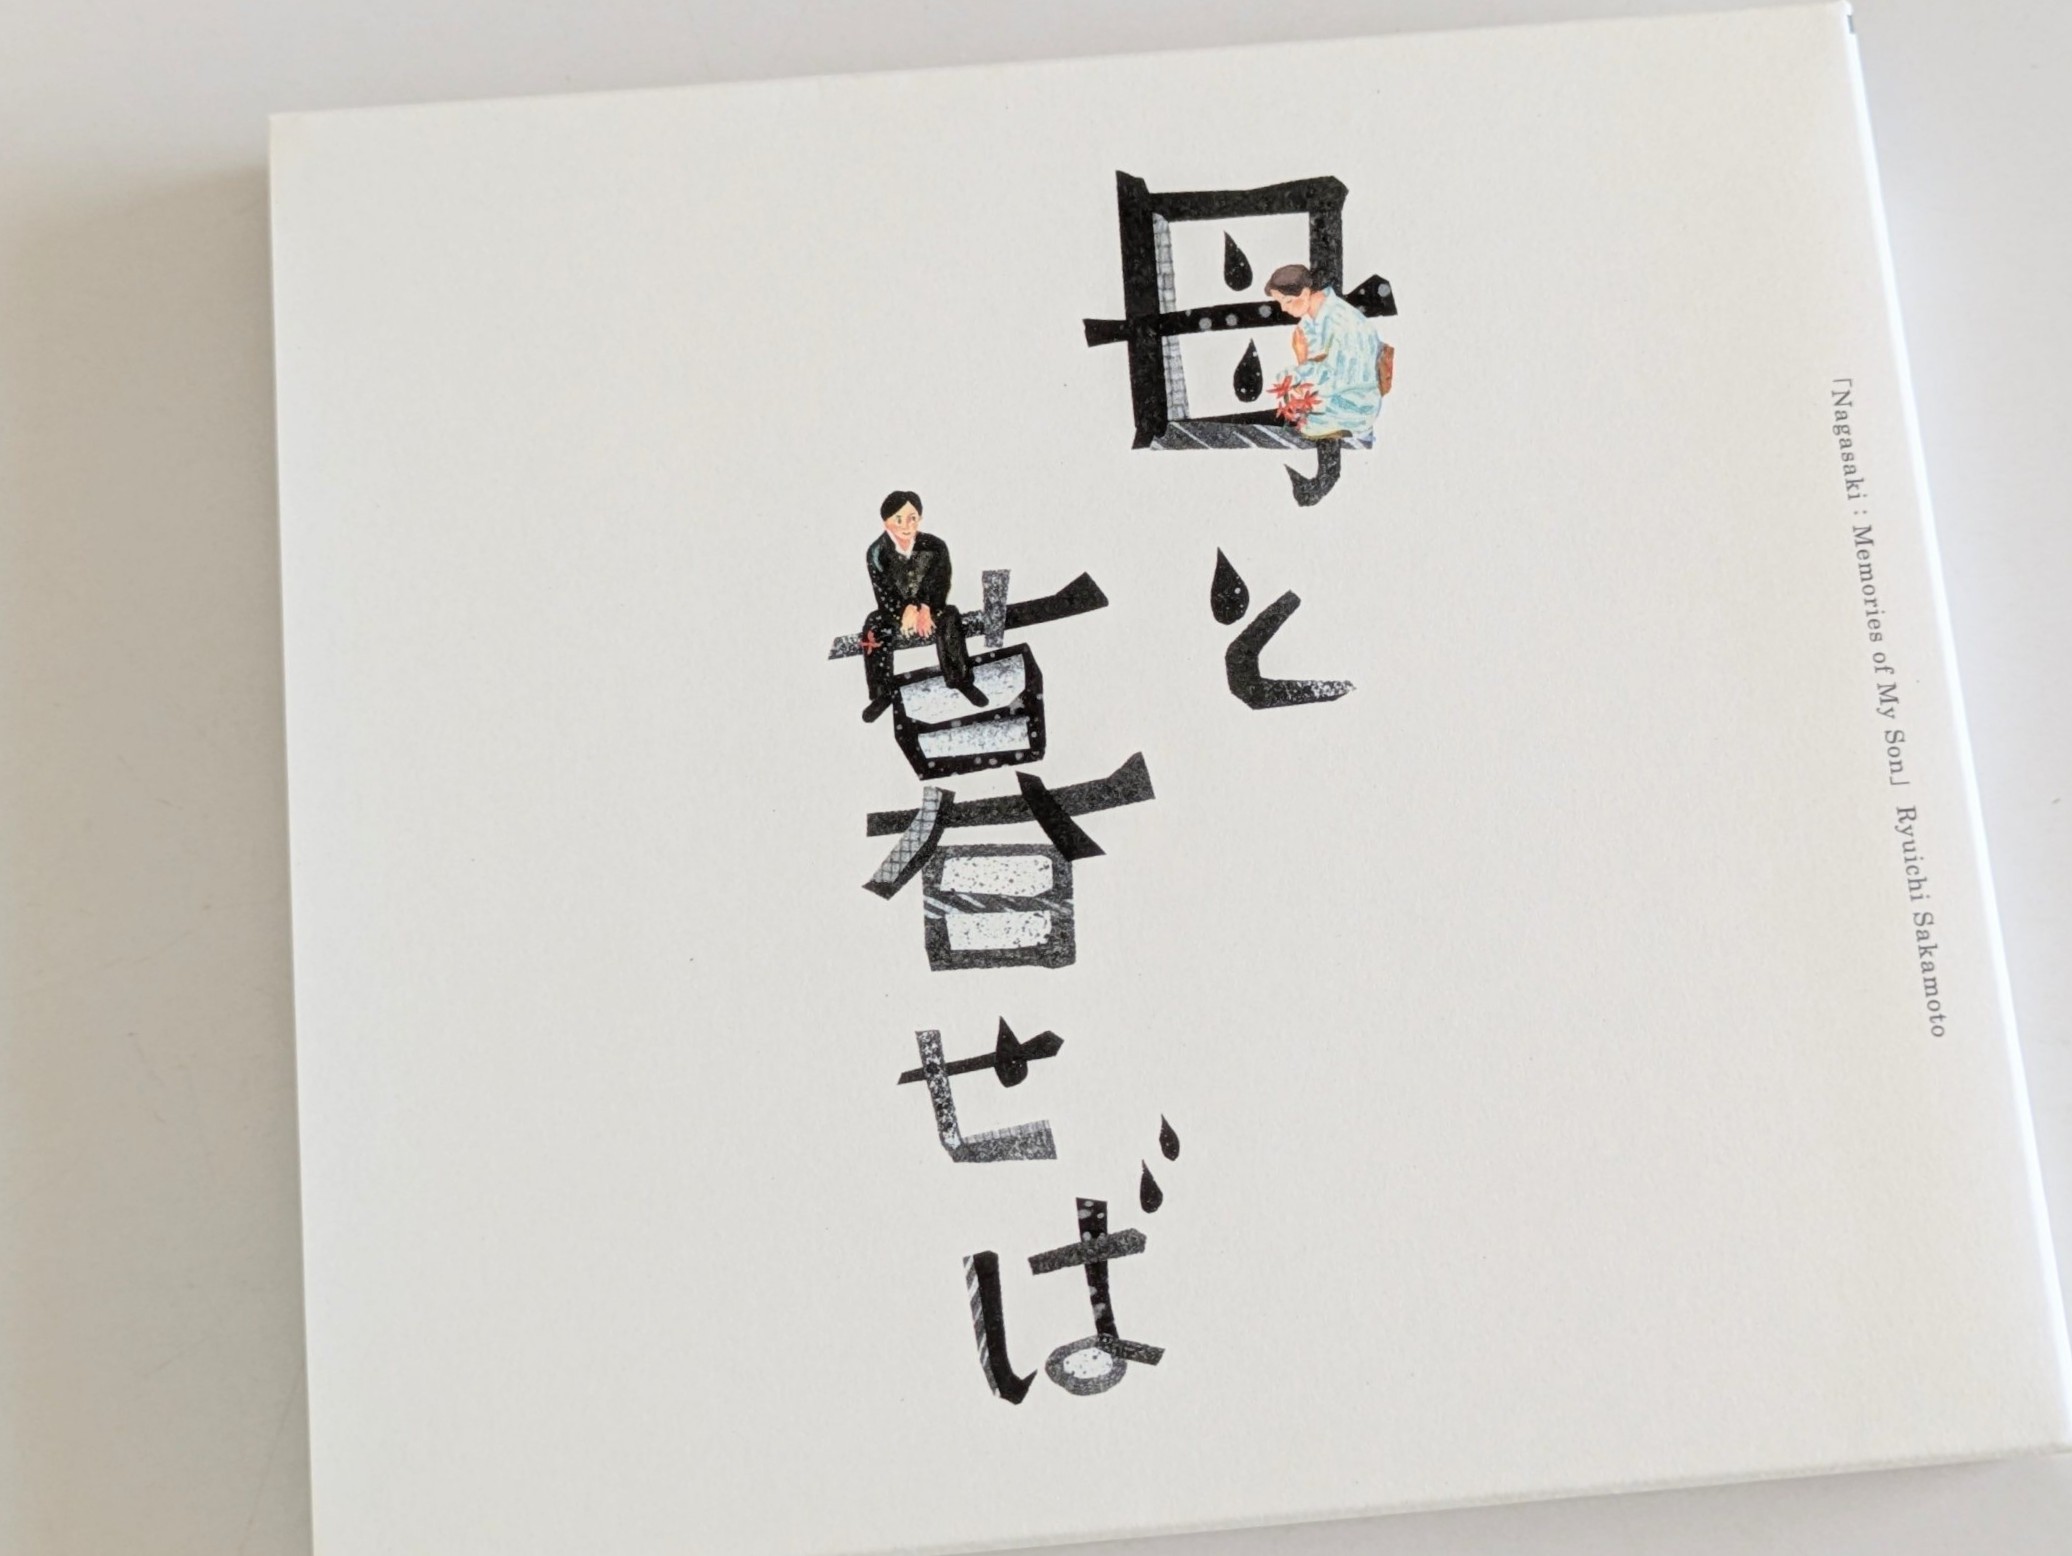 「Nagasaki : Memories of My Son」 Ryuichi Sakamoto
母と
暮せば